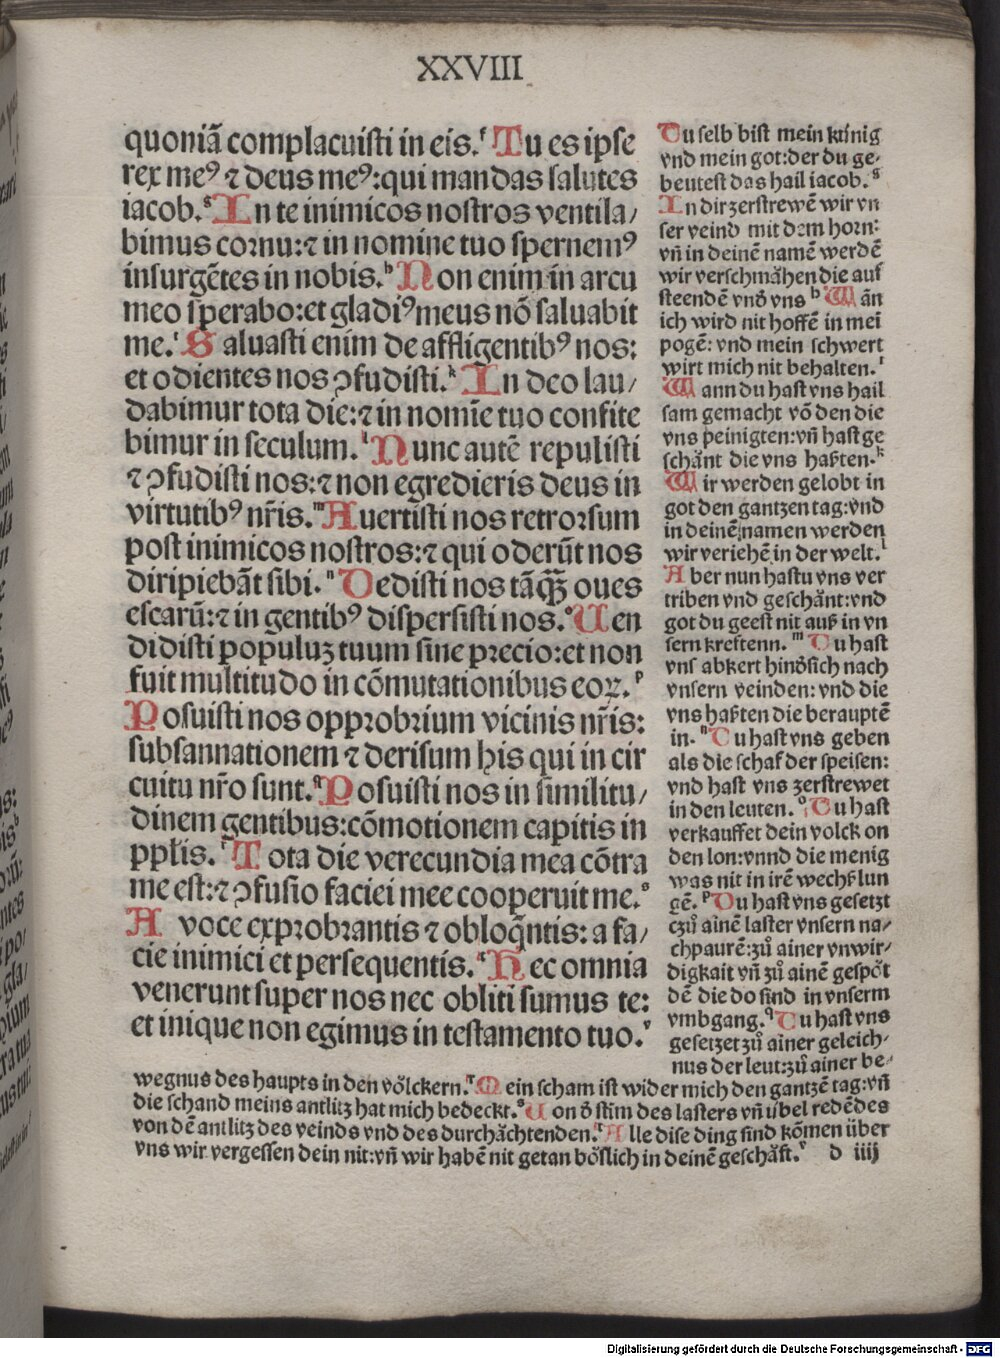 XXVIII
quoniā complacuisti in eis.ᶠ Tu es ipse
rex meꝰ ⁊ deus meꝰ:qui mandas salutes
iacob.ᵍ In te inimicos nostros ventila/
bimus cornu:⁊ in nomine tuo spernemꝰ
insurgētes in nobis.ʰ Non enim in arcu
meo sperabo:et gladiꝰ meus nō saluabit
me.ⁱ Saluasti enim de affligentibꝰ nos:
et odientes nos ꝯfudisti.ᵏ In deo lau/
dabimur tota die:⁊ in nomīe tuo confite
bimur in seculum.ˡ Nunc autē repulisti
⁊ ꝯfudisti nos:⁊ non egredieris deus in
virtutibꝰ nr̄is.ᵐ Auertisti nos retrorsum
post inimicos nostros:⁊ qui oderūt nos
diripiebāt sibi.ⁿ Dedisti nos tāq̄ȝ oues
escarū:⁊ in gentibꝰ dispersisti nos.ᵒ Uen
didisti populuȝ tuum sine precio:et non
fuit multitudo in cōmutationibus eoꝝ.ᵖ
Posuisti nos opprobrium vicinis nr̄is:
subsannationem ⁊ derisum his qui in cir
cuitu nr̄o sunt.ᑫ Posuisti nos in similitu/
dinem gentibus:cōmotionem capitis in
pplīs.ʳ Tota die verecundia mea cōtra
me est:⁊ ꝯfusio faciei mee cooperuit me.ˢ
A voce exprobrantis ⁊ obloq̄ntis: a fa/
cie inimici et persequentis.ᵗ Hec omnia
venerunt super nos nec obliti sumus te:
et inique non egimus in testamento tuo.ᵛ
Du selb bist mein kúnig
vnd mein got:der du ge-
beutest das hail iacob.ᵍ
In dir zerstrewē wir vn
ser veind mit dem horn:
vn̄ in deinē namē werdē
wir verschmähen die auf
steendē vnō vns ʰ Wān
ich wird nit hoffē in mei
pogē: vnd mein schwert
wirt mich nit behalten.ⁱ
Wann du hast vns hail
sam gemacht vō den die
vns peinigten:vn̄ hast ge
schǎnt die vns haßten.ᵏ
Wir werden gelobt in
got den gantzen tag:vnd
in deinē namen werden
wir veriehē in der welt.ˡ
Aber nun hastu vns ver
triben vnd geschǎnt:vnd
got du geest nit auß in vn
sern kreftenn.ᵐ Du hast
vns abkert hinōsich nach
vnsern veinden: vnd die
vns haßten die berauptē
in.ⁿ Du hast vns geben
als die schaf der speisen:
vnd hast vns zerstrewet
in den leuten.ᵒ Du hast
verkauffet dein volck on
den lon:vnnd die menig
was nit in irē wechßlun
gē.ᵖ Du hast vns gesetzt
czů ainē laster vnsern na-
chpaurē:zů ainer vnwir-
digkait vn̄ zů ainē gespöt
dē die do sind in vnserm
vmbgang.ᑫ Du hast vns
gesetzet zů ainer geleich-
nus der leut:zů ainer be-
wegnus des haupts in den völckern.ʳ Mein scham ist wider mich den gantzē tag:vn̄
die schand meins antlitz hat mich bedeckt.ˢ Uon ō stim des lasters vn̄ übel redēdes
von dē antlitz des veinds vnd des durchǎchtenden.ᵗ Alle dise ding sind kōmen über
vns wir vergessen dein nit:vn̄ wir habē nit getan böslich in deinē geschǎft.ᵛ d iiij
Digitalisierung gefördert durch die Deutsche Forschungsgemeinschaft - DFG